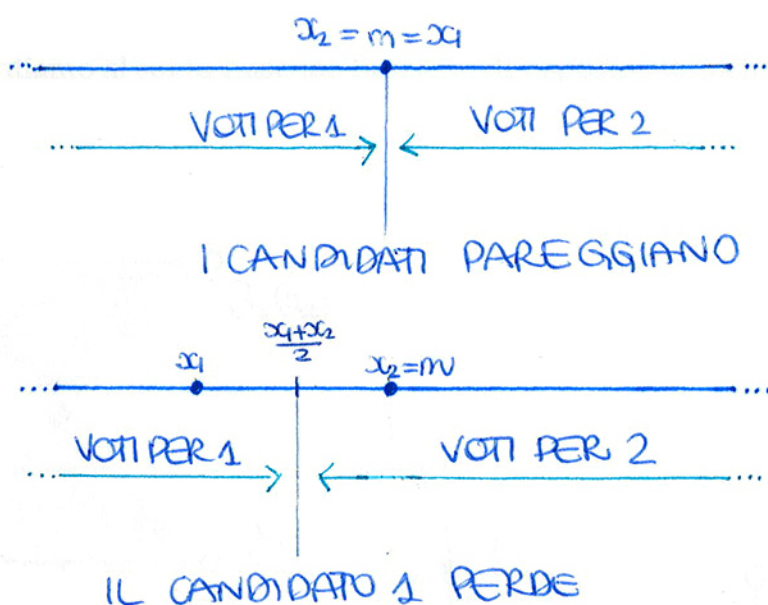 x₂ = m = x₁
VOTI PER 1 VOTI PER 2
I CANDIDATI PAREGGIANO
x₁+x₂
2
x₁ x₂=m
VOTI PER 1 VOTI PER 2
IL CANDIDATO 1 PERDE